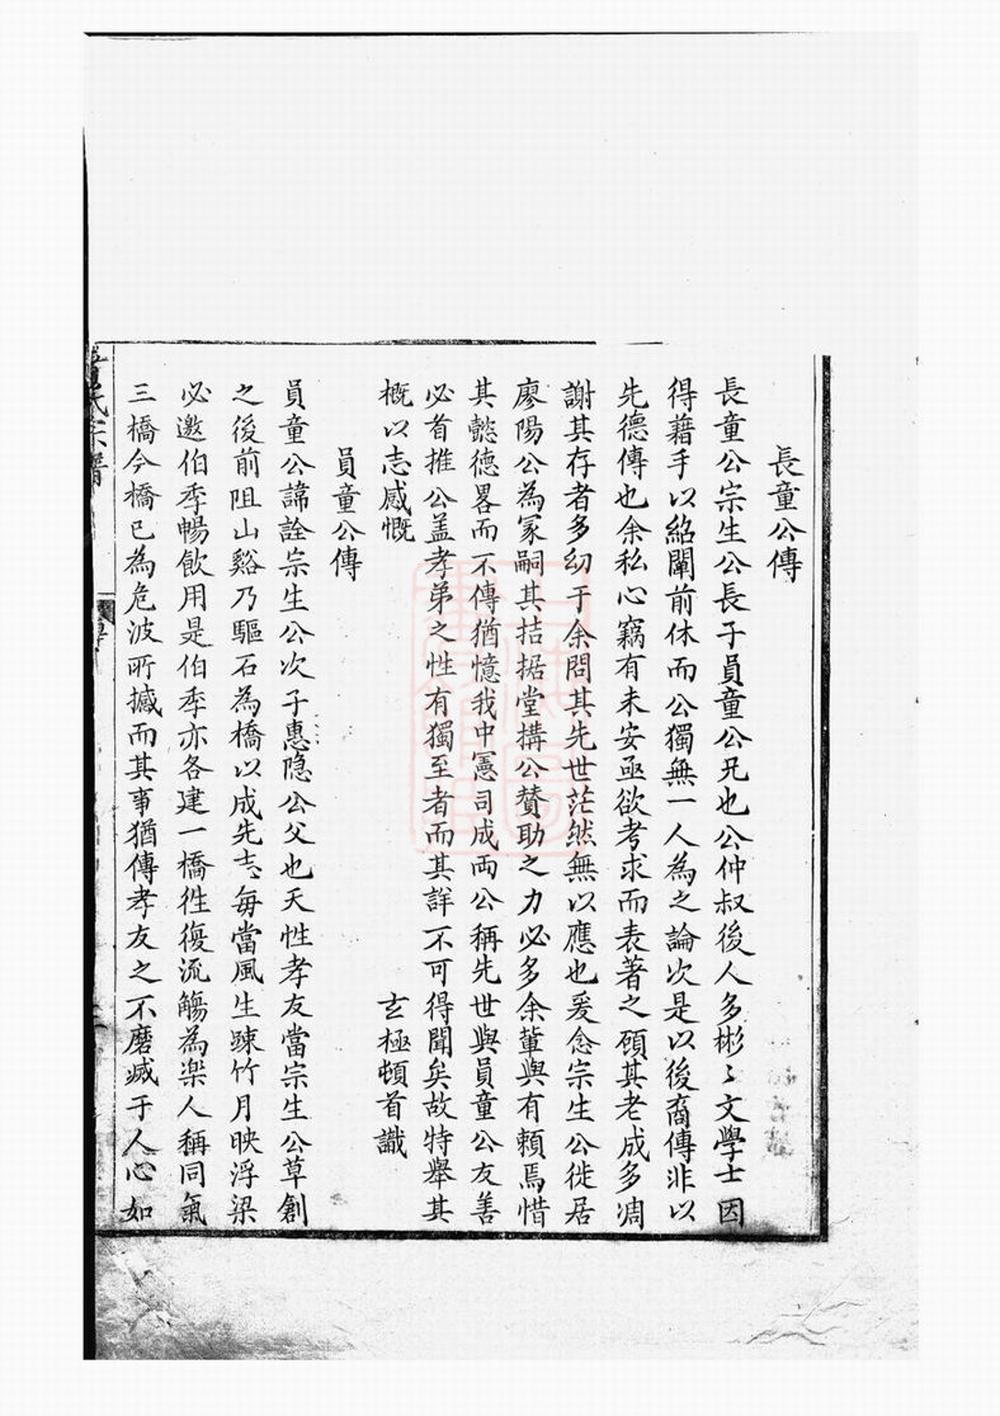 長童公傳
長童公宗生公長子員童公兄也公仲叔後人多彬〻文學士因
得藉手以紹闡前休而公獨無一人為之論次是以後裔傳非以
先德傳也余私心竊有未安亟欲考求而表著之顧其老成多凋
謝其存者多幼于余問其先世茫然無以應也爰念宗生公徙居
廖陽公為冢嗣其拮据堂搆公賛助之力必多余軰與有賴焉惜
其懿德畧而不傳猶憶我中憲司成両公稱先世與員童公友善
必首推公盖孝弟之性有獨至者而其詳不可得聞矣故特舉其
概以志感慨 玄極頓首識
員童公傳
員童公諱詮宗生公次子惠隐公父也天性孝友當宗生公草創
之後前阻山谿乃驅石為橋以成先志每當風生踈竹月映浮梁
必邀伯季暢飲用是伯季亦各建一橋徃復流觴為楽人稱同氣
三橋今橋已為危波所撼而其事猶傳孝友之不磨滅于人心如